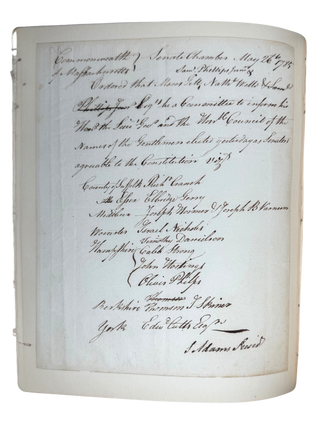 Commonwealth } Senate Chamber May 26th 1785
of Massachusetts }
Saml Phillips junr
Ordered that Moses Gill, Nathl Wells & Saml
Phillips Junr Esqrs be a Committee to inform his
Honr the Lieut Govr and the Honble Council of the
Names of the Gentlemen elected yesterday as Senators
agreeable to the Constitution vizt
County of Suffolk Richd Cranch
Essex Elbridge Gerry
Middlesex Joseph Hosmer & Joseph B Varnum
Worcester Israel Nichols
Hampshire Timothy Danielson
Caleb Strong
John Hastings
Oliver Phelps
Berkshire Thompson J Skinner
York Edwd Cutts Esqrs
S Adams Presidt